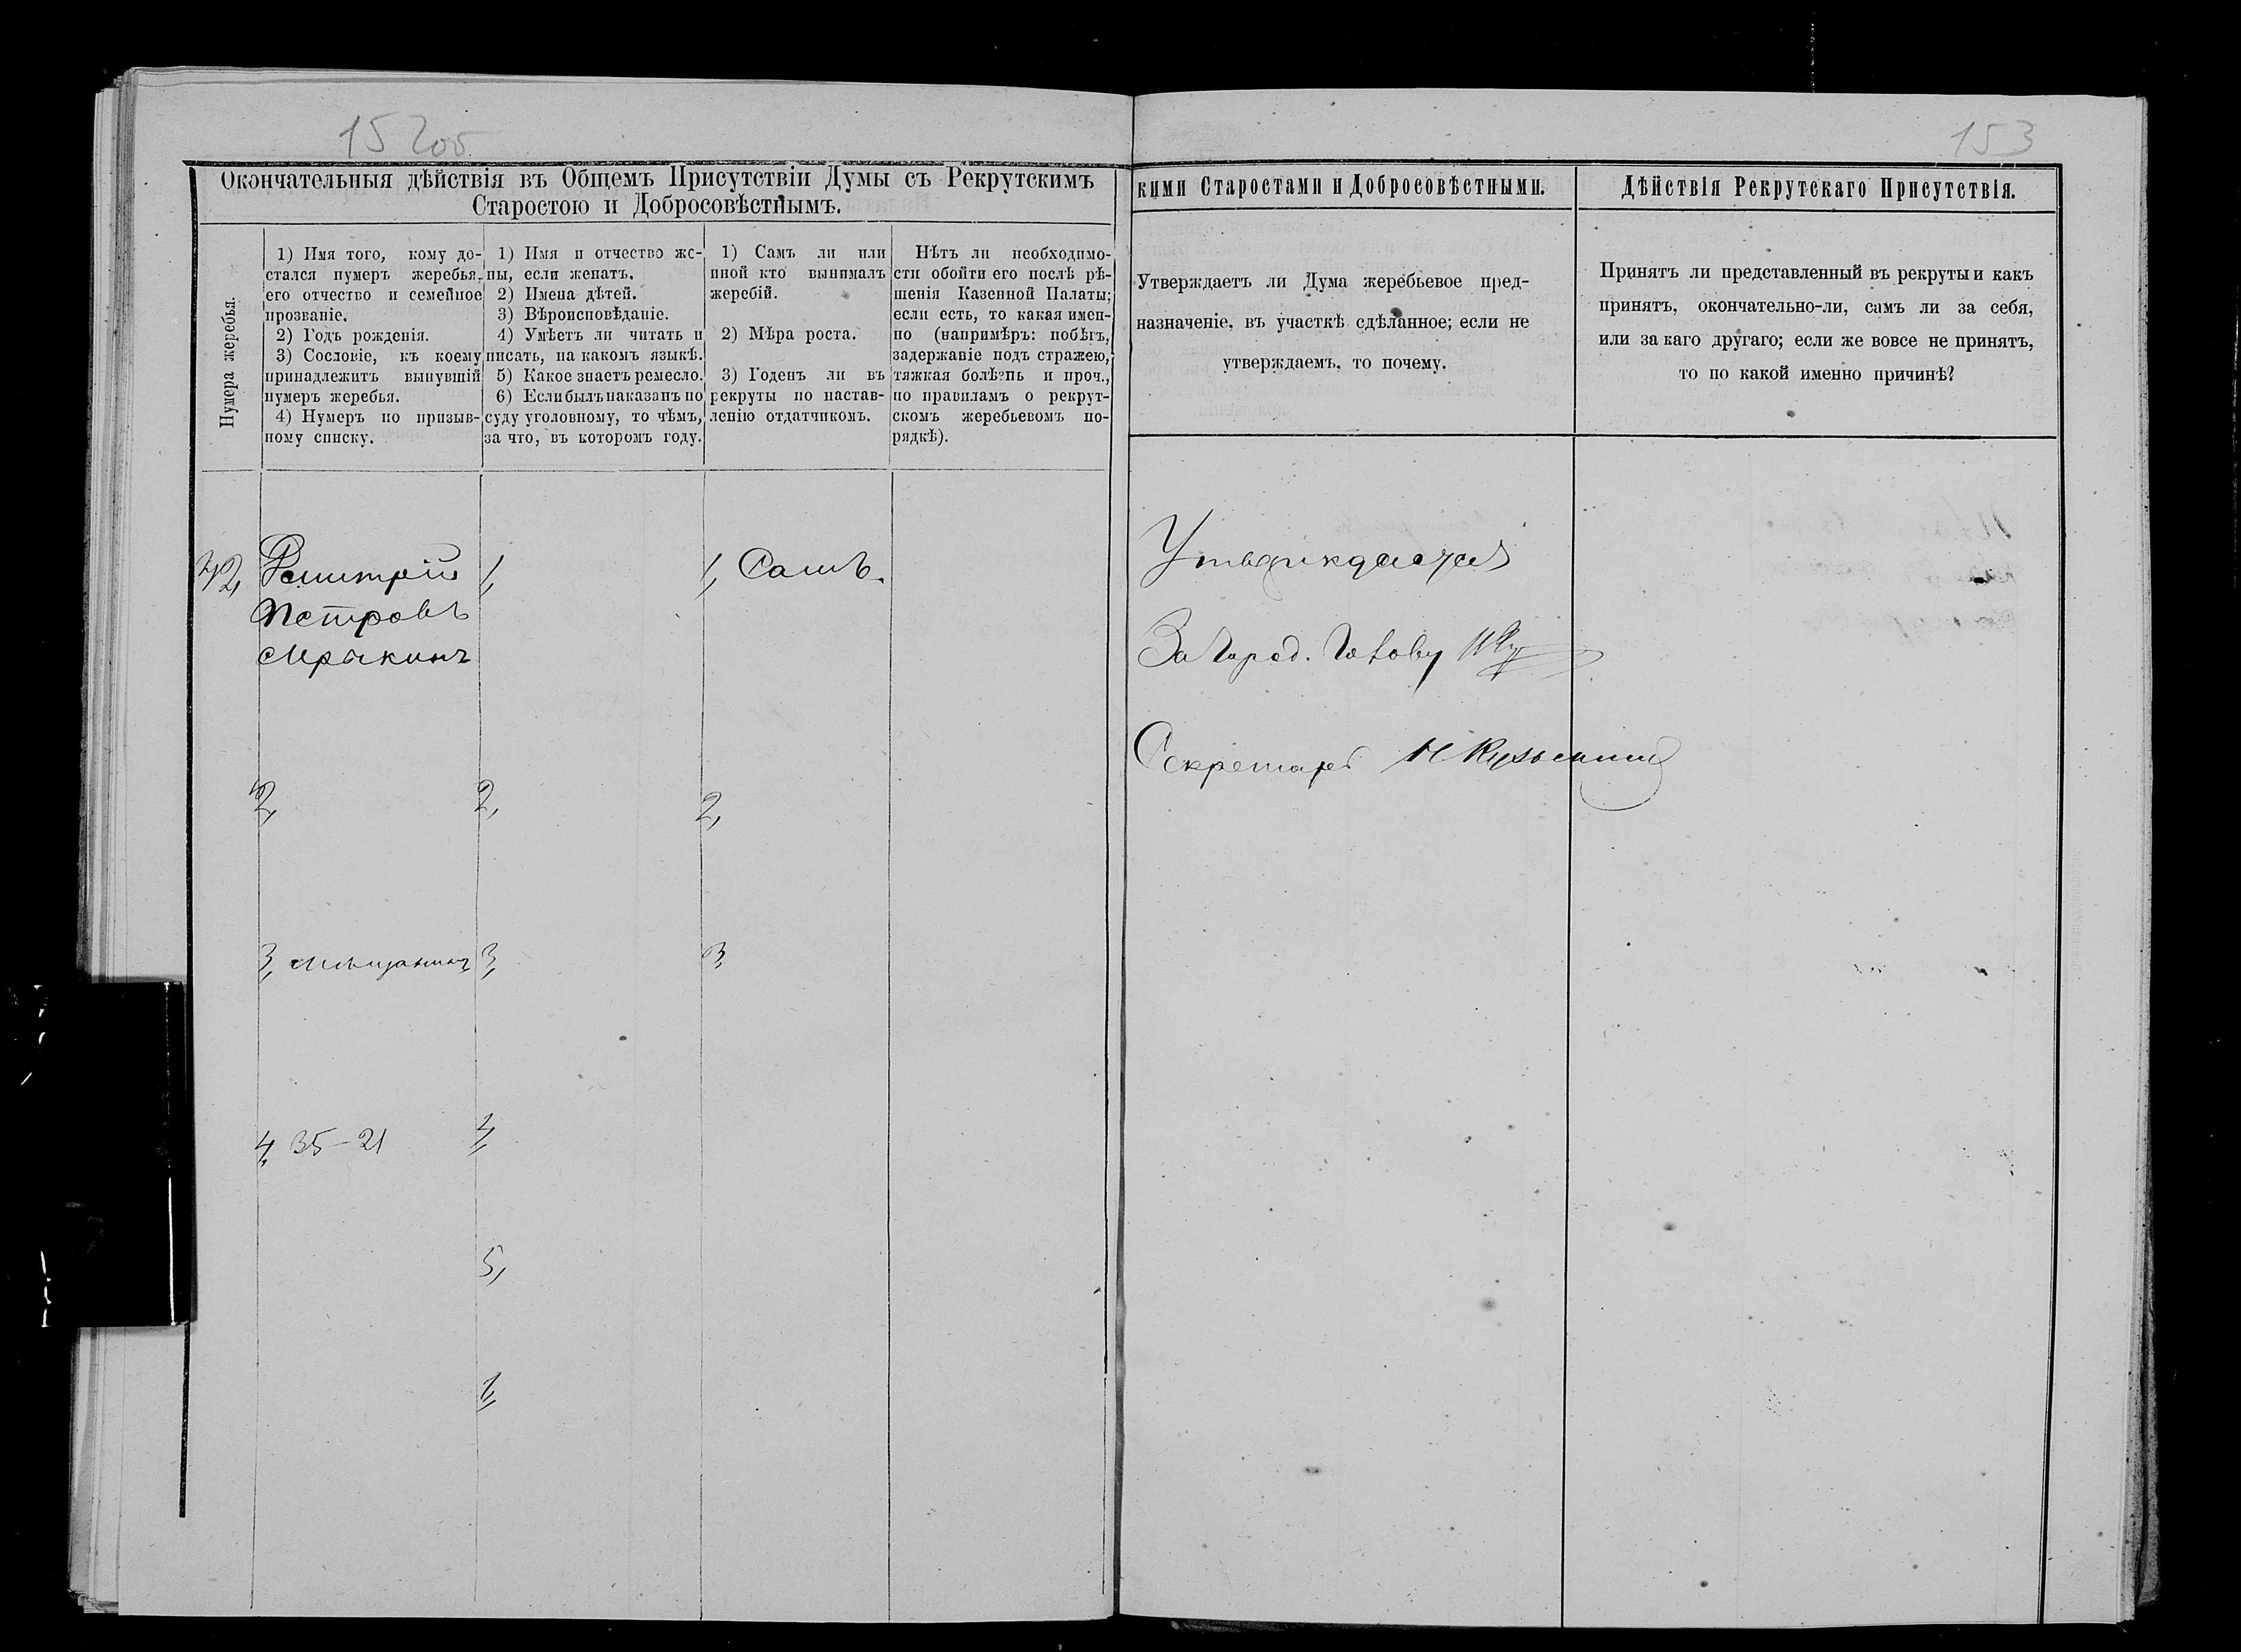 152об
153
Окончательныя дѣйствія въ Общемъ Присутствіи Думы съ Рекрутскимъ
Старостою и Добросовѣстнымъ.
Нумера жеребья.
1) Имя того, кому до-
стался нумеръ жеребья,
его отчество и семейное
прозваніе.
2) Годъ рожденія.
3) Сословіе, къ коему
принадлежитъ вынувшій
нумеръ жеребья.
4) Нумеръ по призыв-
ному списку.
1) Имя и отчество же-
ны, если женатъ.
2) Имена дѣтей.
3) Вѣроисповѣданіе.
4) Умѣетъ ли читать и
писать, на какомъ языкѣ.
5) Какое знаетъ ремесло.
6) Если былъ наказанъ по
суду уголовному, то чѣмъ,
за что, въ которомъ году.
1) Самъ ли или
иной кто вынималъ
жеребій.
2) Мѣра роста.
3) Годенъ ли въ
рекруты по настав-
ленію отдатчикомъ.
Нѣтъ ли необходимо-
сти обойти его послѣ рѣ-
шенія Казенной Палаты;
если есть, то какая имен-
но (напримѣръ: побѣгъ,
задержаніе подъ стражею,
тяжкая болѣзнь и проч.,
по правиламъ о рекрут-
скомъ жеребьевомъ по-
рядкѣ).
кими Старостами и Добросовѣстными.
Утверждаетъ ли Дума жеребьевое пред-
назначеніе, въ участкѣ сдѣланное; если не
утверждаемъ, то почему.
Дѣйствія Рекрутскаго Присутствія.
Принятъ ли представленный въ рекруты и какъ
принятъ, окончательно-ли, самъ ли за себя,
или за каго другаго; если же вовсе не принятъ,
то по какой именно причинѣ?
42,
Дмитрій
Петровъ
Мрыкинъ
1,
1, Самъ.
2,
2,
2,
3, мѣщанинъ
3,
3,
4, 35-21
4,
5,
Утверждается
За Город. Голову
Секретарь Н Кузьминъ